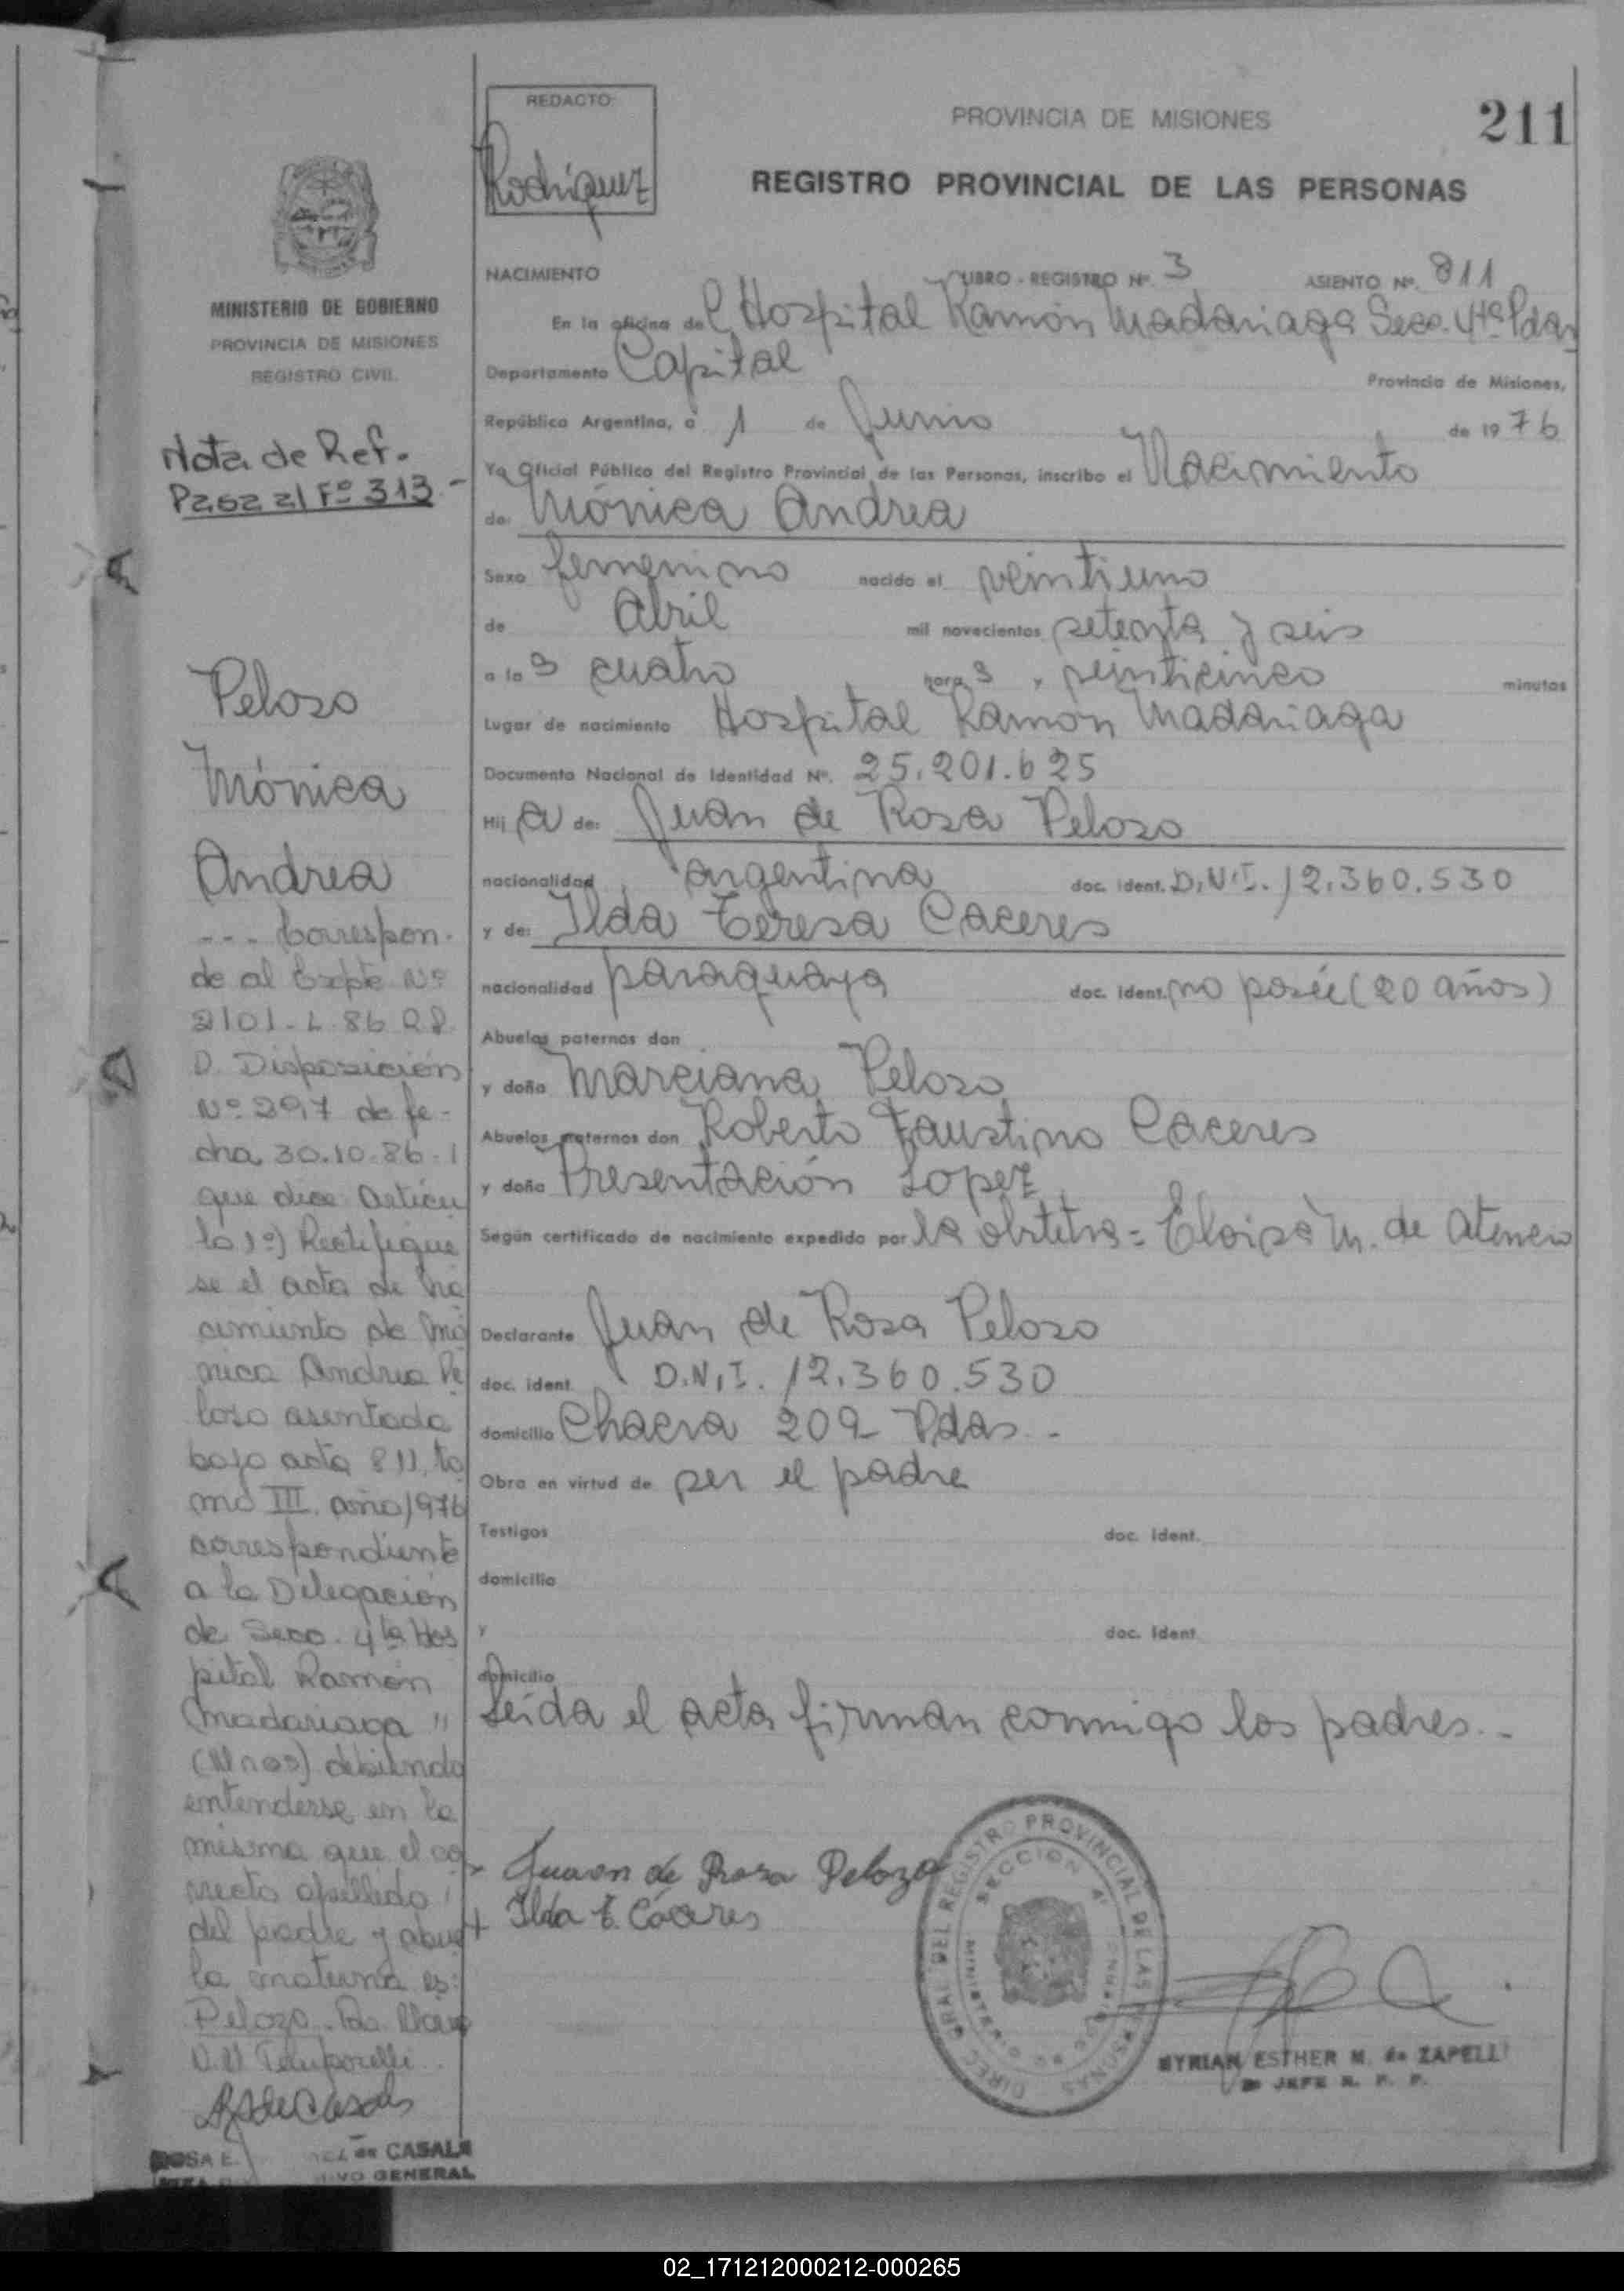 211
REDACTO:
Rodriguez
PROVINCIA DE MISIONES
REGISTRO PROVINCIAL DE LAS PERSONAS
MINISTERIO DE GOBIERNO
PROVINCIA DE MISIONES
REGISTRO CIVIL
Nota de Ref.
Pasa al Fº 313.-
Peloso
Mónica
Andrea
--- Correspon-
de al Expte Nº
2101-L-86 R.P.
D. Disposición
Nº 297 de fe-
cha 30.10.86.
que dice Artícu
lo 1º) Rectifique
se el acta de na
cimiento de Mó
nica Andrea Pe
loso asentada
bajo acta 811, to
mo III. año 1976
correspondiente
a la Delegación
de Secc. 4ta Hos
pital Ramón
Madariaga"
debiendo
entenderse en la
misma que el co
rrecto apellido
del padre y abue
la materna es:
Pelozo.
ROSA E. de CASALS
GENERAL
NACIMIENTO LIBRO - REGISTRO Nº. 3 ASIENTO Nº. 811
En la oficina del Hospital Ramón Madariaga Secc. 4ta Pdas
Departamento Capital Provincia de Misiones,
República Argentina, a 1 de Junio de 1976
Yo Oficial Público del Registro Provincial de las Personas, inscribo el Nacimiento
de: Mónica Andrea
Sexo femenino nacido el veintiuno
de Abril mil novecientos setenta y seis
a las cuatro horas y veinticinco minutos
Lugar de nacimiento Hospital Ramón Madariaga
Documento Nacional de Identidad Nº. 25.201.625
Hija de: Juan de Rosa Peloso
nacionalidad argentina doc. ident. D.N.I. 12.360.530
y de: Ilda Teresa Caceres
nacionalidad paraguaya doc. ident. no poseé (20 años)
Abuelos paternos don
y doña Marciana Peloso
Abuelos maternos don Roberto Faustino Caceres
y doña Presentación Lopez
Según certificado de nacimiento expedido por la obstetra = Eloisa M. de
Declarante Juan de Rosa Peloso
doc. ident. D.N.I. 12.360.530
domicilio Chacra 209 Pdas.-
Obra en virtud de ser el padre
Testigos doc. ident.
domicilio
y doc. ident.
domicilio
Leída el acta firman conmigo los padres.-
Juan de Rosa Pelozo
Ilda T. Cáceres
DIREC. GRAL. DEL REGISTRO PROVINCIAL DE LAS PERSONAS
SECCION 4ª
MINISTERIO DE GOBIERNO
MYRIAN ESTHER M. de ZAPELLI
JEFE R. P. P.
02_171212000212-000265